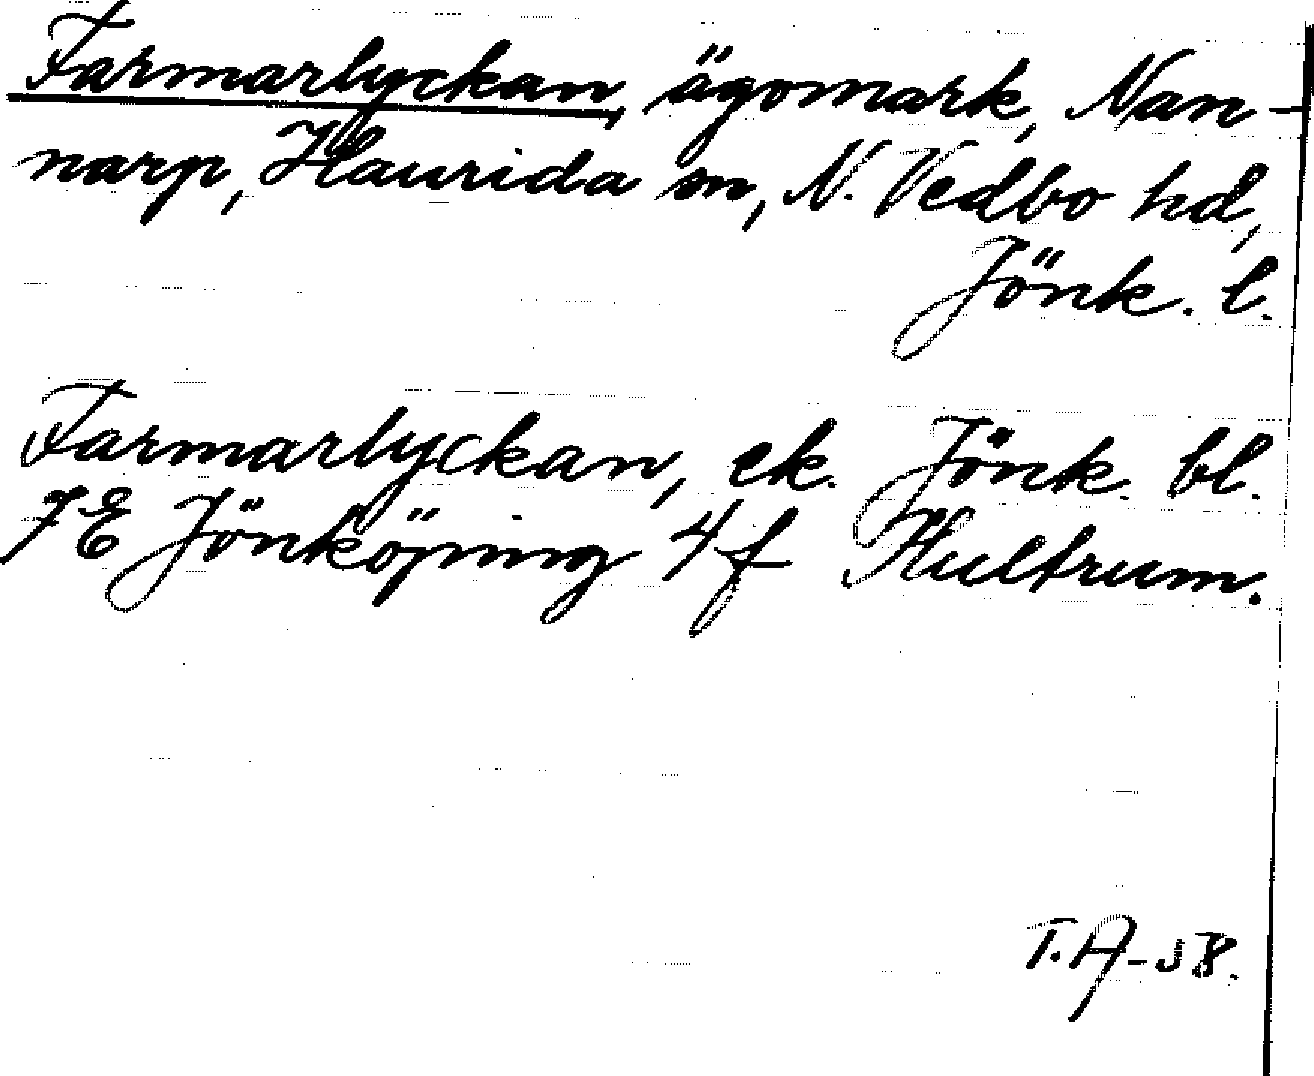 Farmarlyckan, ägomark, Nan-
narp, Haurida sn, N. Vedbo hd,
Jönk. l.
Farmarlyckan, ek. Jönk. bl.
7E Jönköping 4f Hultrum.
T.A-58.